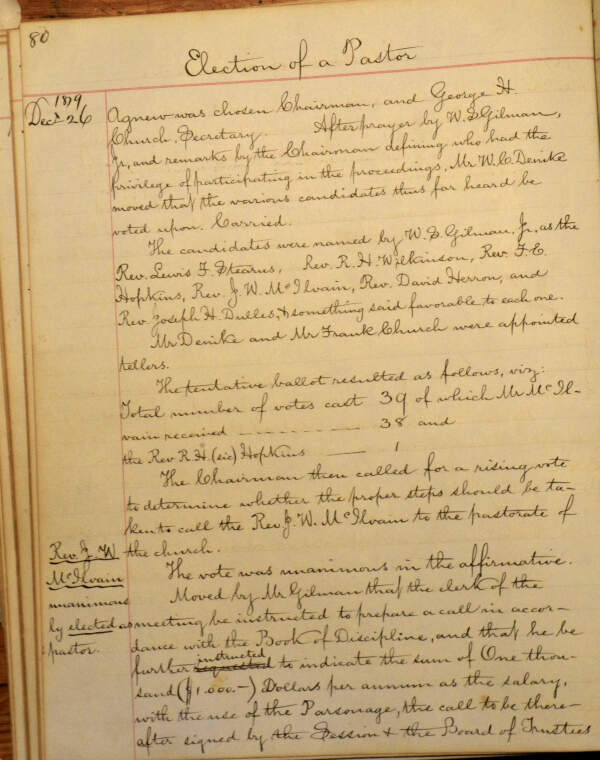 80
Election of a Pastor
1879
Decr 26
Agnew was chosen Chairman, and George H.
Church, Secretary. After prayer by W. S. Gilman,
Jr., and remarks by the Chairman defining who had the
privilege of participating in the proceedings, Mr W. C. Denike
moved that the various candidates thus far heard be
voted upon. Carried.
The candidates were named by W. S. Gilman, Jr., as the
Rev. Lewis F. Stearns, Rev. R. H. Wilkinson, Rev. F. E.
Hopkins, Rev. J. W. McIlvain, Rev. David Herron, and
Rev Joseph H. Dulles, & something said favorable to each one.
Mr Denike and Mr Frank Church were appointed
tellers.
The tentative ballot resulted as follows, viz:
Total number of votes cast 39 of which Mr McIl-
vain received - - - - - - - - - 38 and
the Rev R. H. (sic) Hopkins —— 1
The Chairman then called for a rising vote
to determine whether the proper steps should be ta-
ken to call the Rev J. W. McIlvain to the pastorate of
the church.
Rev. J. W.
McIlvain
unanimous
ly elected as
pastor.
The vote was unanimous in the affirmative.
Moved by Mr Gilman that the clerk of the
meeting be instructed to prepare a call in accor-
dance with the Book of Discipline, and that he be
further requested instructed to indicate the sum of One thou-
sand ($1.000.-) Dollars per annum as the salary,
with the use of the Parsonage, the call to be there-
after signed by the Session & the Board of Trustees